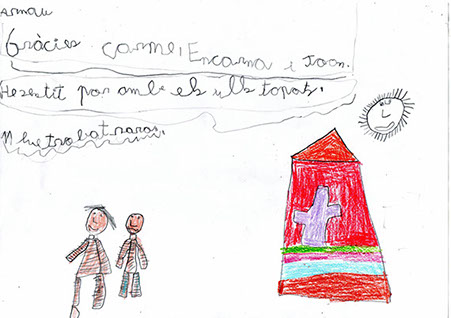 ARNAU
Gràcies Carme, Encarna i Joan.
He sentit por amb els ulls topats.
M he trobat raros.